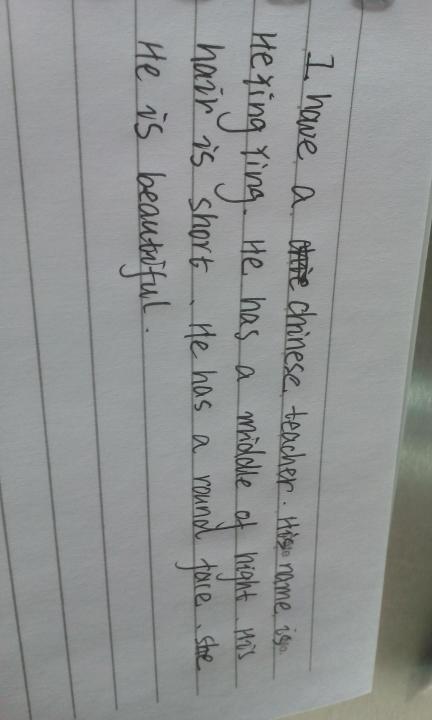 I have a chinese teacher. His name is
He Ying Ying. He has a middle of hight. His
hair is short. He has a round face. she
He is beautiful.